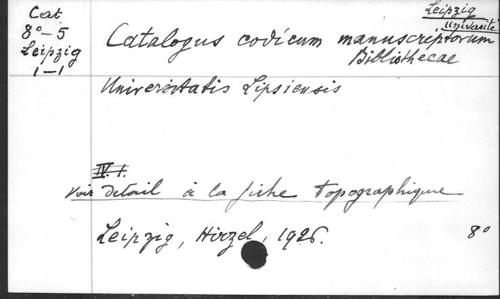 Cat
8°-5
Leipzig
1-1
Leipzig
Université
Catalogus codicum manuscriptorum
Bibliothecae
Universitatis Lipsiensis
IV. 1.
Voir detail à la fiche topographique
Leipzig, Hirzel, 1926.
8°